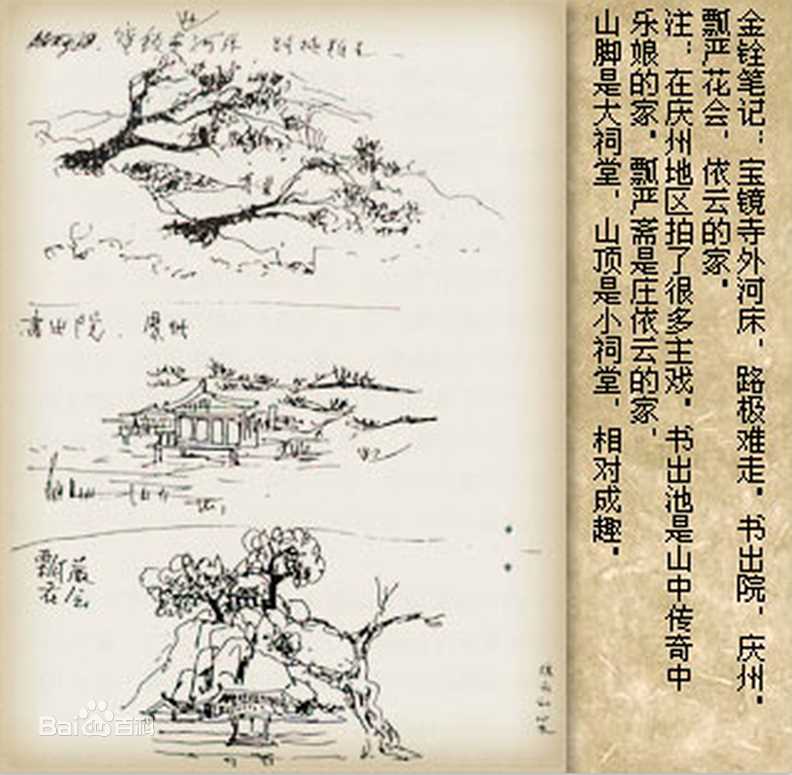 金铨笔记：宝镜寺外河床，路极难走。书出院，庆州。
瓢严花会，依云的家。
注：在庆州地区拍了很多主戏。书出池是山中传奇中
乐娘的家。瓢严斋是庄依云的家，
山脚是大祠堂，山顶是小祠堂，相对成趣。
書出院．慶州
Bai百科